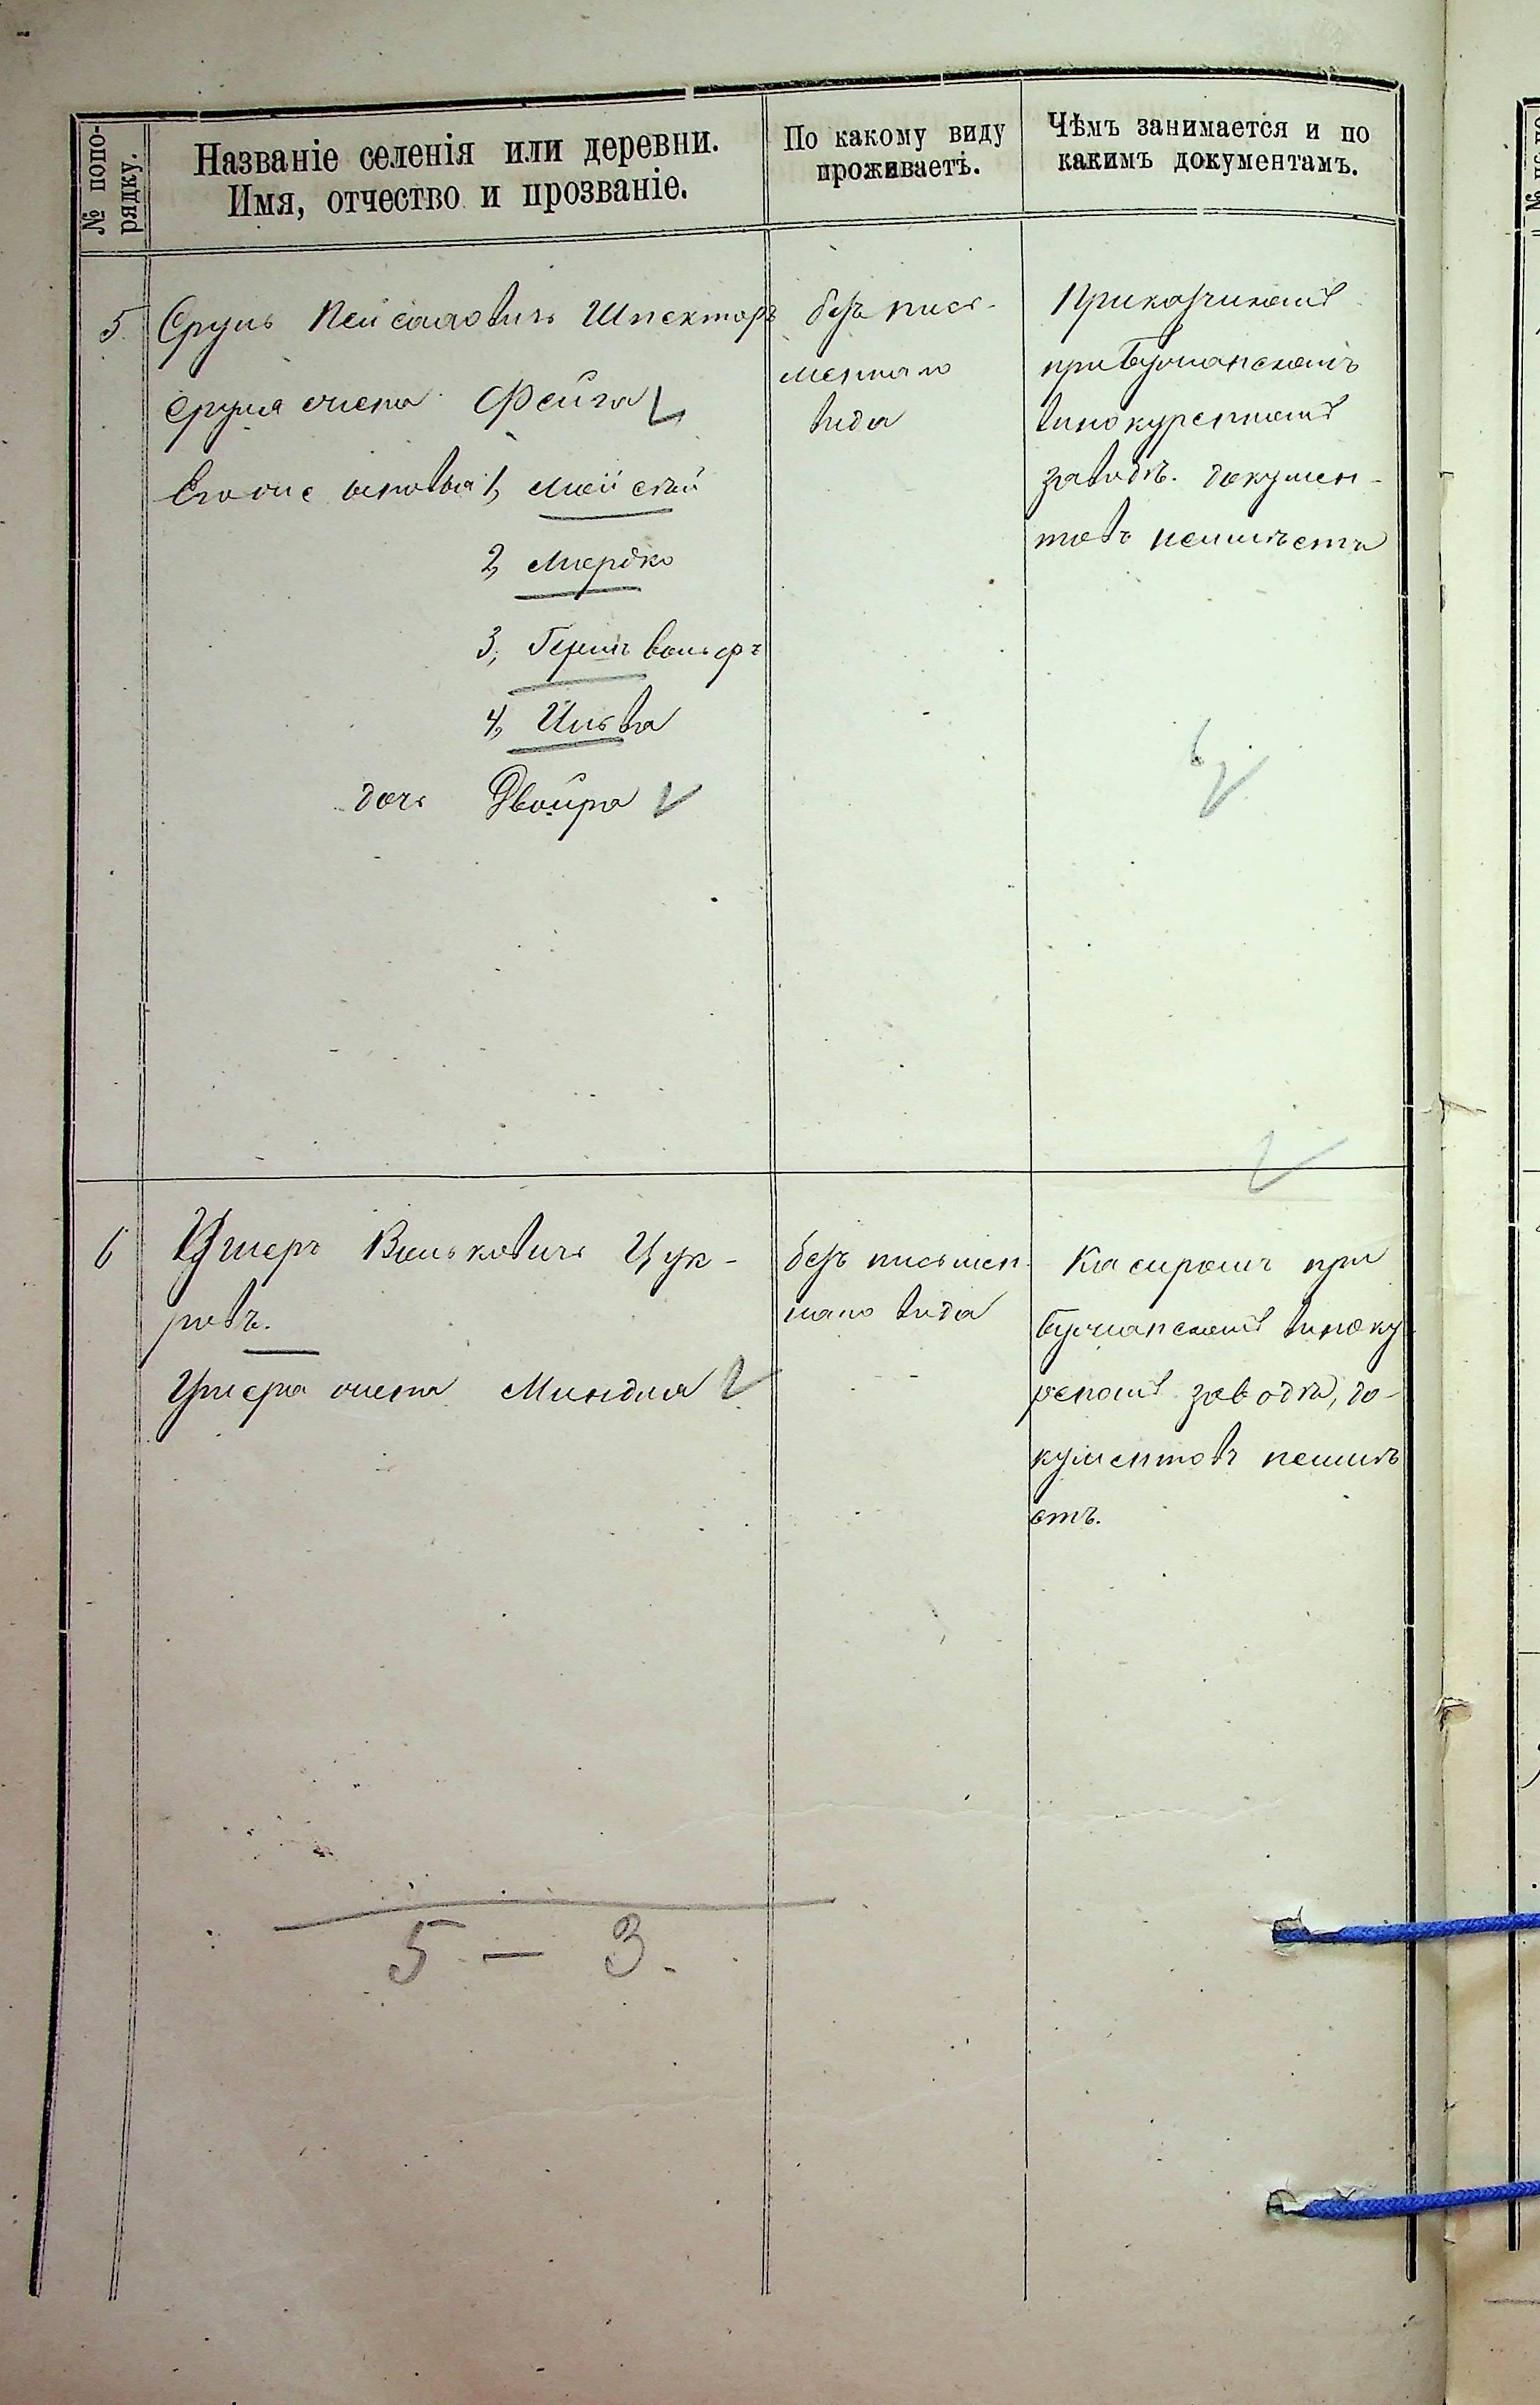 № попо-
рядку.
Названіе селенія или деревни.
Имя, отчество и прозваніе.
По какому виду
проживаетъ.
Чѣмъ занимается и по
какимъ документамъ.
5
Сруль Пейсаховичъ Шпекторъ
Сруля жена Фейга
Егоже сыновья 1, Мойсей
2, Мердко
3, Гершъ Вольфъ
4, Ильва
дочь Двойра
безъ пись-
меннаго
вида
Приказчикомъ
при Бужанскомъ
винокуренномъ
заводѣ. докумен-
товъ неимѣетъ
6
Ушеръ Вольковичъ Цук-
ровъ.
Ушера жена Миндля
безъ письмен
наго вида
Касиромъ при
Бужанскомъ виноку
реномъ заводѣ, до-
кументовъ неимѣ
етъ.
5 — 3.